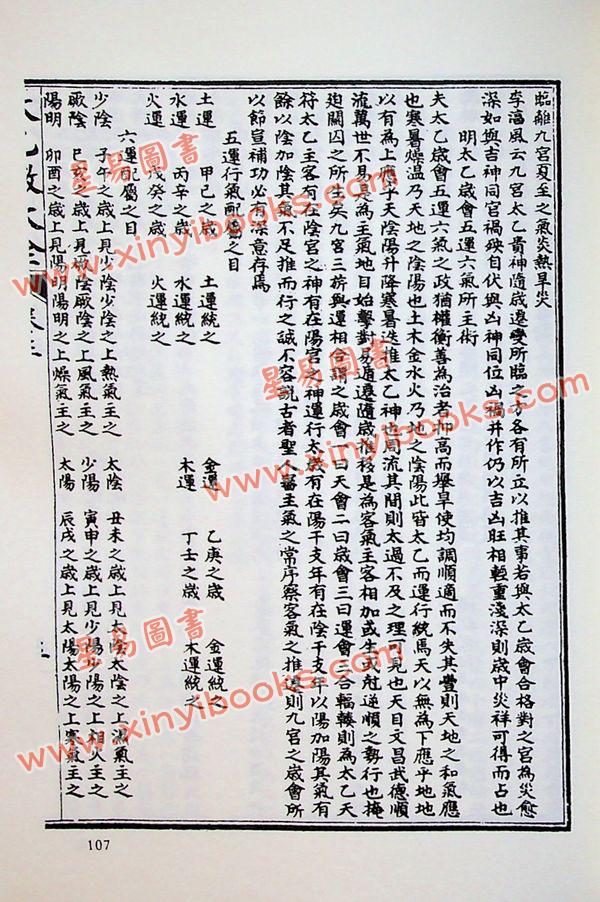 臨離九宮夏至之氣炎熱旱災
李淳風云九宮太乙貴神隨歲遷變所臨之方各有所立以推其事若與太乙歲會合格對之宮為災愈
深如與吉神同宮禍殃自伏與凶神同位凶禍并作仍以吉凶旺相輕重淺深則歲中災祥可得而占也
明太乙歲會五運六氣所主術
夫太乙歲會五運六氣之政猶權衡善為治者抑高而舉卑使均調順適而不失其豐則天地之和氣應
也寒暑燥溫乃天地之陰陽也土木金水火乃地之陰陽此皆太乙而運行統焉天以無為下應乎地地
以有為上應乎天陰陽升降寒暑迭推太乙神也周流其間則太過不及之理可見也天目文昌武德順
流萬世不易莫為主氣地目始擊對易遁遷隨歲推移是為客氣主客相加或生或尅逆順之勢行也掩
廹關囚之所生矣九宮三旂與運相合謂之歲會一曰天會二曰歲會三曰運會三合輻轃則為太乙天
符太乙主客有在陰宮之神有在陽宮之神運行太歲有在陽干支年有在陰干支年以陽加陽其氣有
餘以陰加陰其氣不足推而行之誠不容說古者聖人醫主氣之常序察客氣之推遷則九宮之歲會所
以節宣補功必有深意存焉
五運行氣所屬之目
土運 甲己之歲 土運統之 金運 乙庚之歲 金運統之
水運 丙辛之歲 水運統之 木運 丁壬之歲 木運統之
火運 戊癸之歲 火運統之
六運配屬之目
少陰 子午之歲上見少陰少陰之上熱氣主之 太陰 丑未之歲上見太陰太陰之上濕氣主之
厥陰 巳亥之歲上見厥陰厥陰之上風氣主之 少陽 寅申之歲上見少陽少陽之上相火主之
陽明 卯酉之歲上見陽明陽明之上燥氣主之 太陽 辰戌之歲上見太陽太陽之上寒氣主之
107
星易圖書
www.xinyibooks.com
星易圖書
www.xinyibooks.com
星易圖書
www.xinyibooks.com